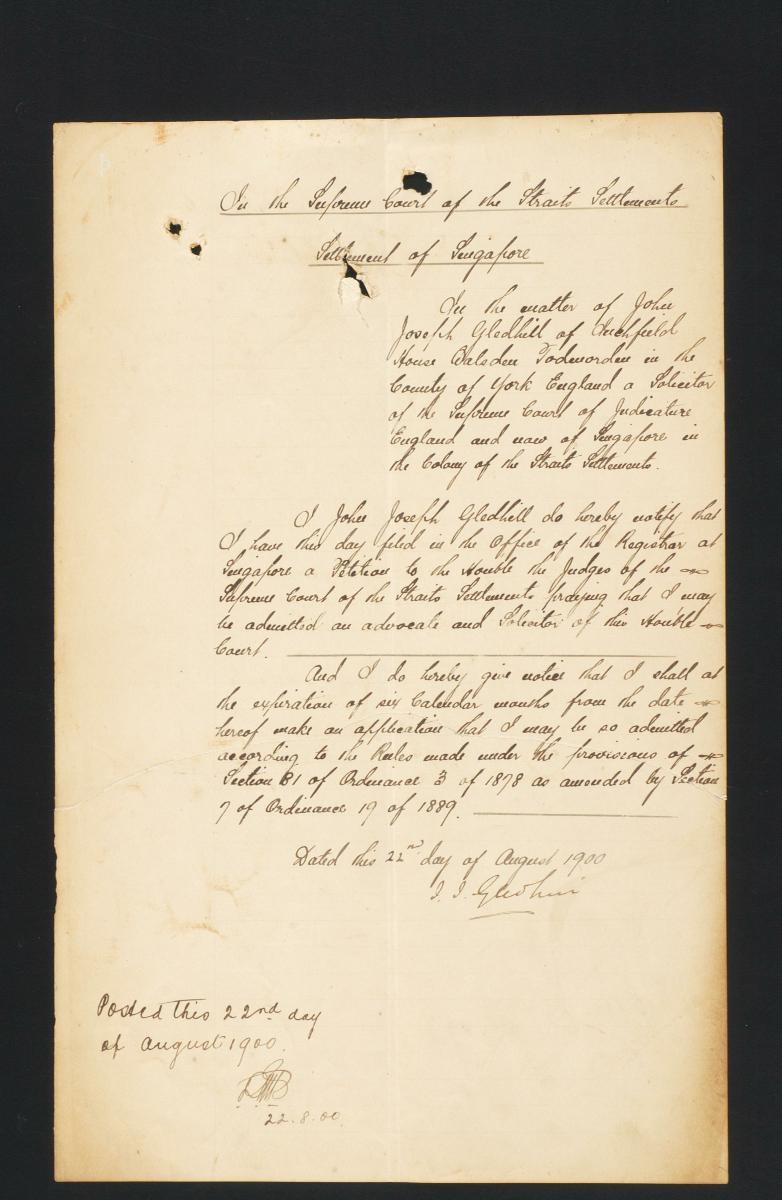 In the Supreme Court of the Straits Settlements
Settlement of Singapore
In the matter of John
Joseph Gledhill of
House Walsden Todmorden in the
County of York England a Solicitor
of the Supreme Court of Judicature
England and now of Singapore in
the Colony of the Straits Settlements.
I John Joseph Gledhill do hereby notify that
I have this day filed in the Office of the Registrar at
Singapore a Petition to the Honble the Judges of the
Supreme Court of the Straits Settlements praying that I may
be admitted an advocate and Solicitor of this Honble
Court.
And I do hereby give notice that I shall at
the expiration of six Calendar months from the date
hereof make an application that I may be so admitted
according to the Rules made under the provisions of
Section 81 of Ordinance 3 of 1878 as amended by Section
7 of Ordinance 19 of 1889.
Dated this 22nd day of August 1900
J. J. Gledhill
Posted this 22nd day
of August 1900.
22.8.00.